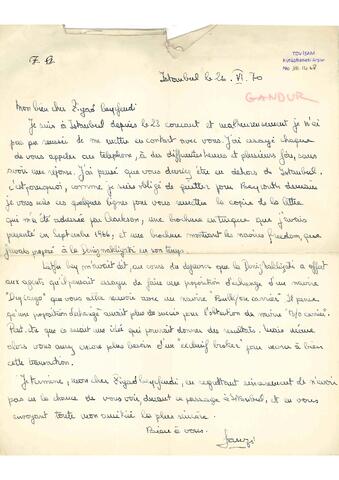 TÜVİSAM
Kütüphanesi Arşivi
No
Istanbul le 26. VI. 70
GANDUR
Mon bien cher Ziyad beyefendi
Je suis à Istanbul depuis le 23 courant et malheureusement je n'ai
pas pu réussir de me mettre en contact avec vous. J'ai essayé chaque
de vous appeler au téléphone, à des différentes heures et plusieurs fois, sans
avoir une réponse. J'ai pensé que vous deviez être en dehors de Istanbul.
c'est pourquoi, comme je suis obligé de quitter pour Beyrouth demain
je vous écris ces quelques lignes pour vous remettre la copie de la lettre
qui m'a été adressée par Clarkson, une brochure en turque que j'avais
présenté en Septembre 1966, et une brochure montrant les navires freedom, que
j'avais proposé à la Deniznakliyatı en son temps.
bey m'avait dit, au cours du déjeuner que la Denizbakliyatı a offert
aux agents qu'il pourrait essayer de faire une proposition d'échange d'un navire
"Dry Cargo" que vous allez avec un navire Bulk/ore carrier. Il pense
qu'une proposition d'échange aurait plus de succès pour l'obtention de navire "O/o carrier".
Peut-être que ce serait une idée qui pourrait donner des résultats. Mais même
alors vous aurez encore plus besoin d'un "exclusif broker" pour mener à bien
cette transaction.
Je termine, mon cher Ziyad beyefendi, en regrettant sincèrement de n'avoir
pas eu la chance de vous voir, durant ce passage à Istanbul, et en vous
envoyant toute mon amitié la plus sincère.
Bien à vous.